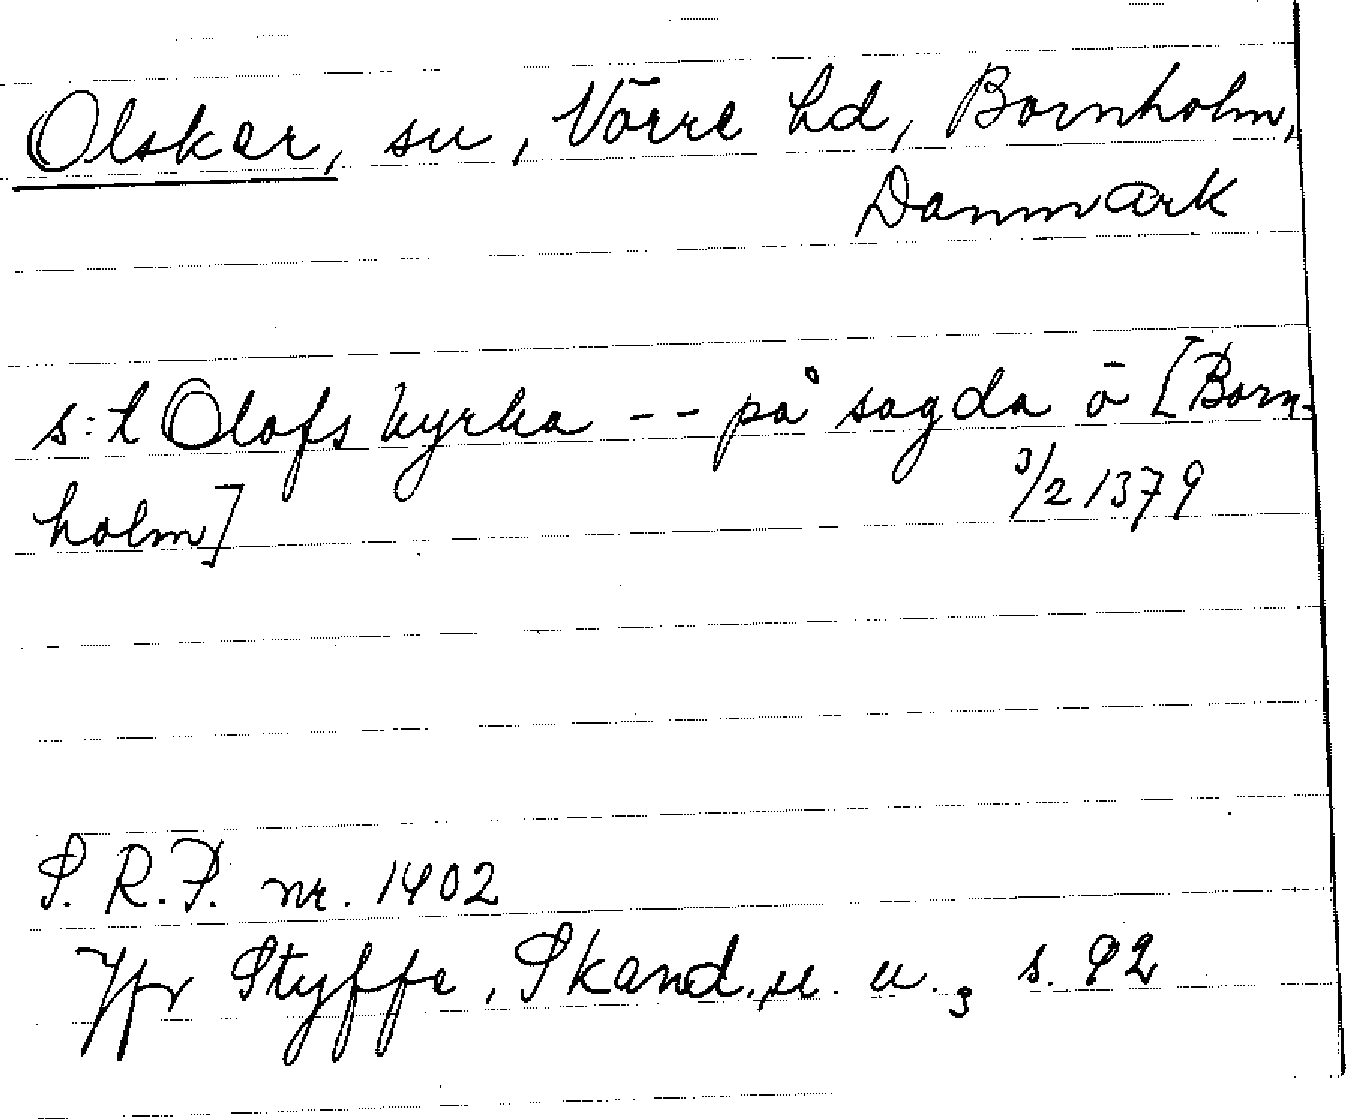 Olsker, sn, Nörre hd, Bornholm,
Danmark
s:t Olofs kyrka -- på sagda ö [Born-
holm] 3/2 1379
S. R.P. nr. 1402
Jfr Styffe, Skand. u. u.3 s. 92